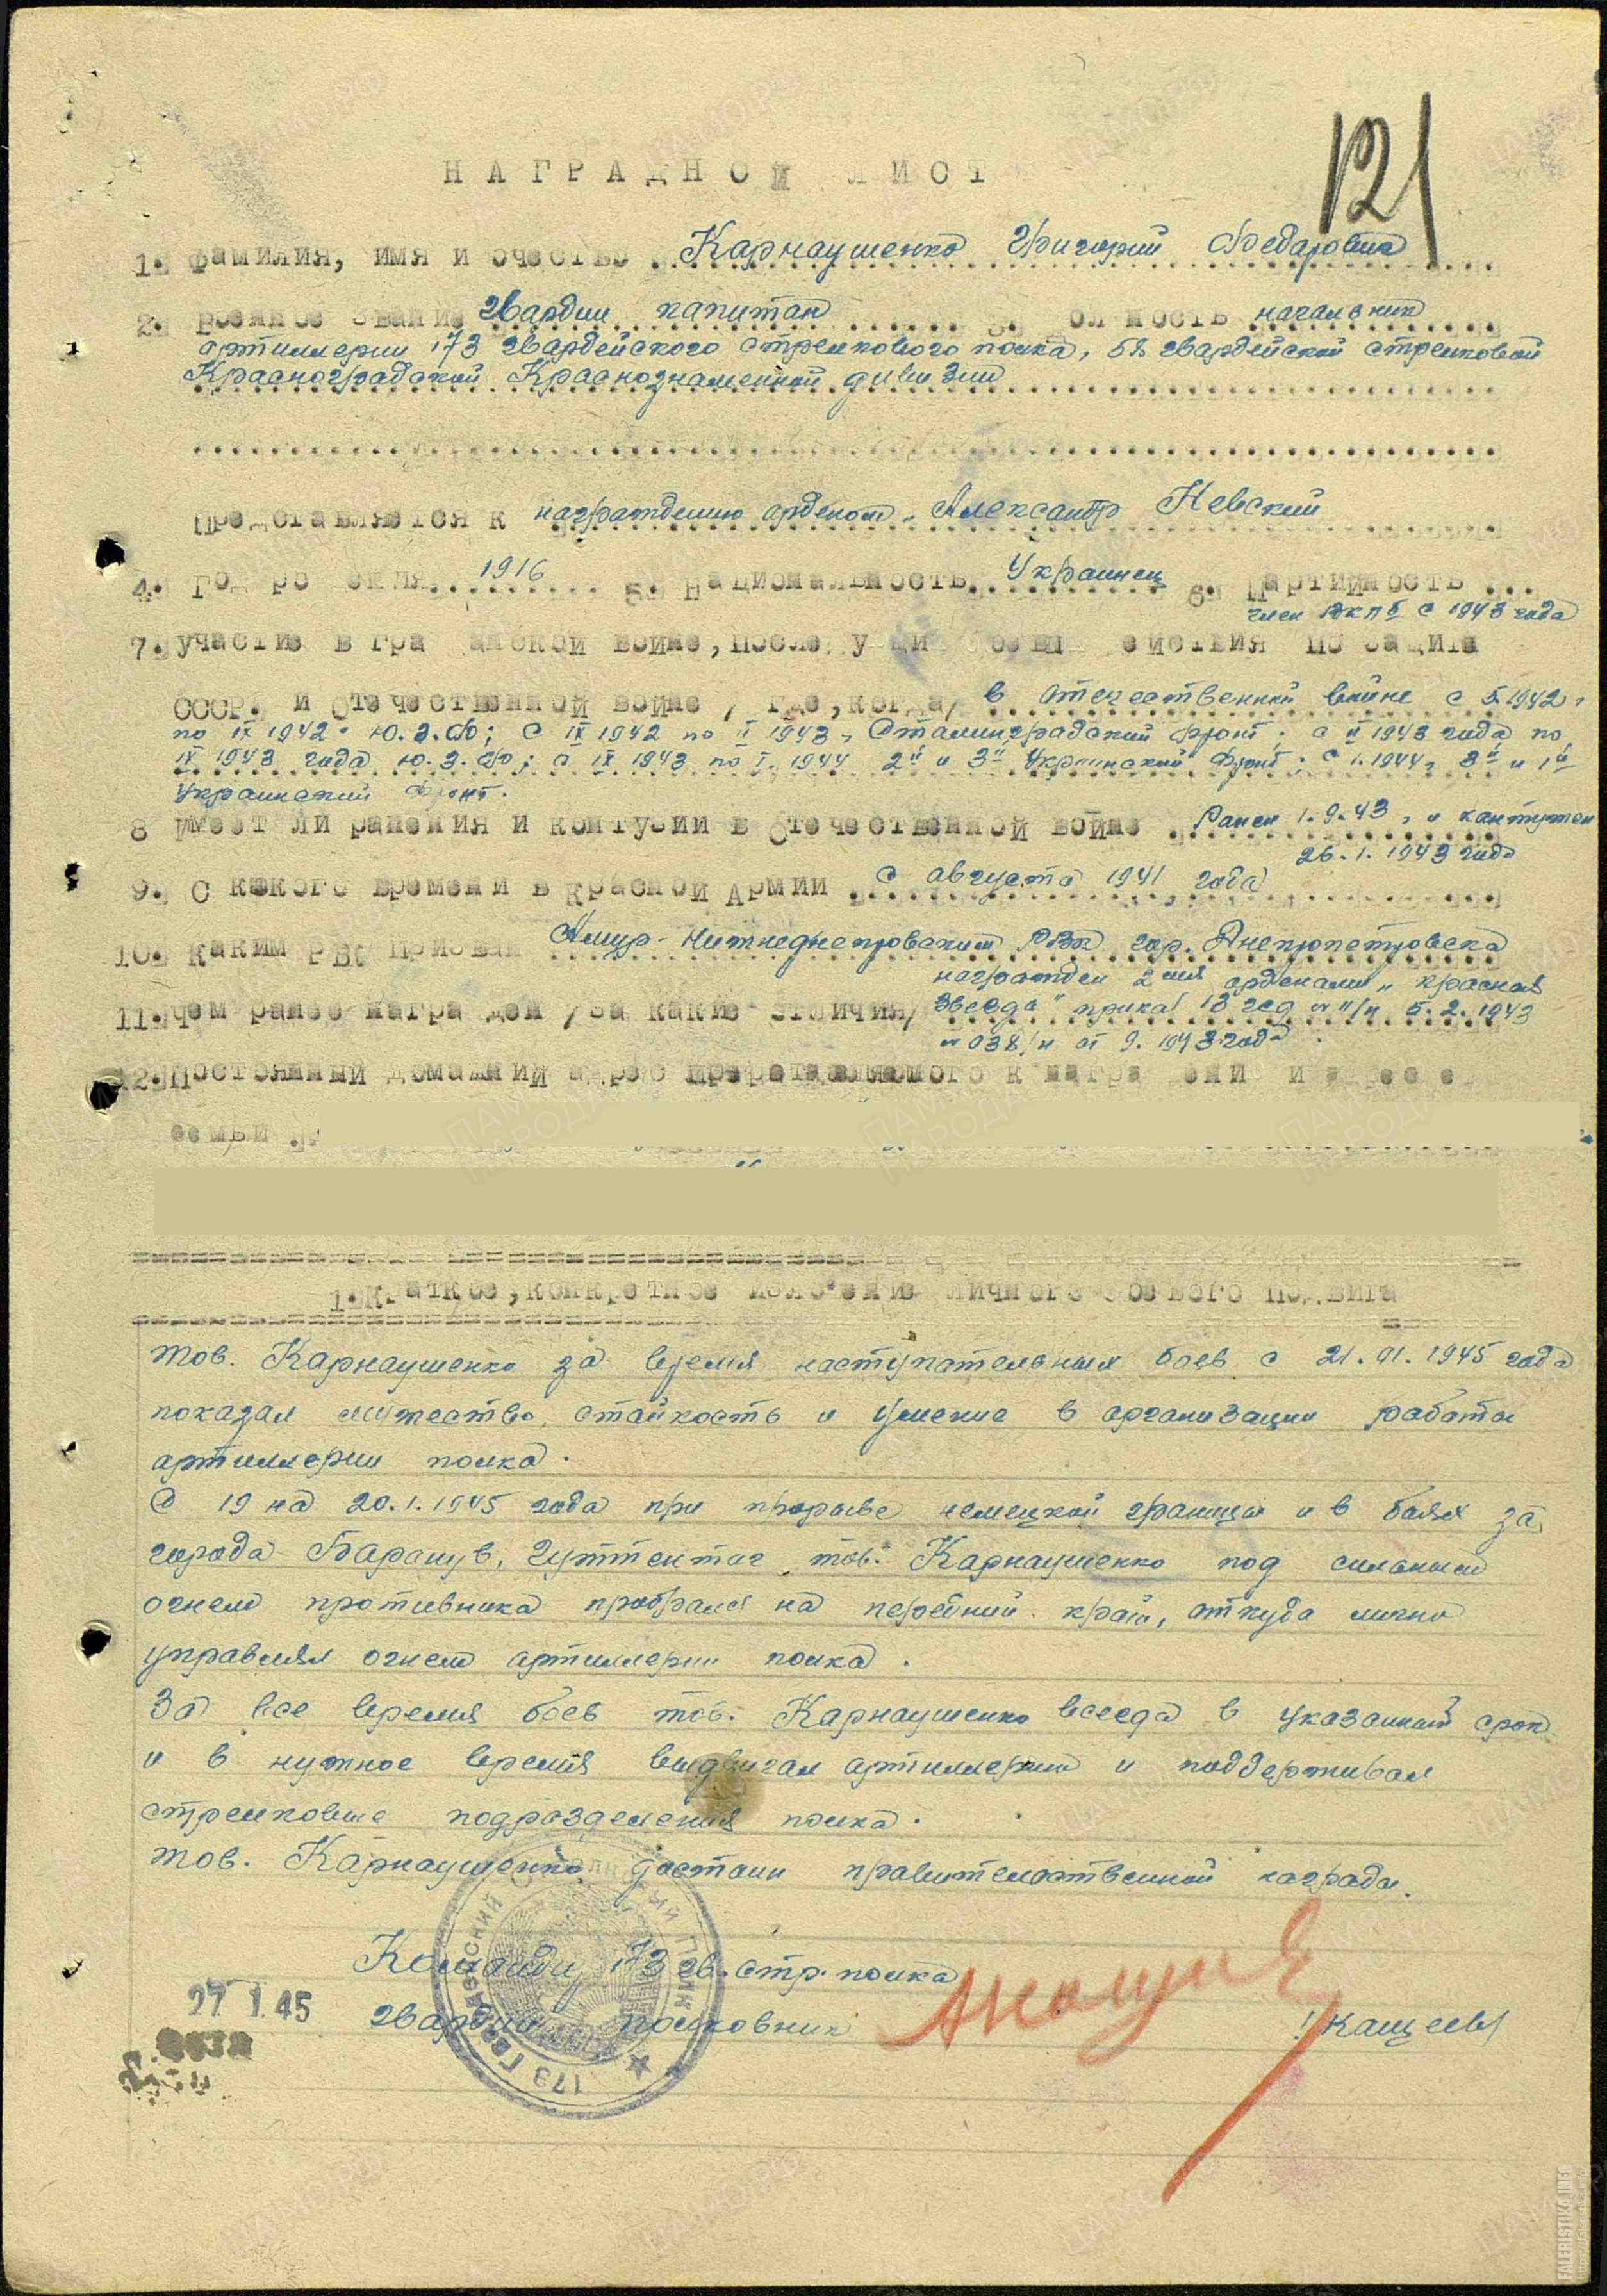 121
НАГРАДНОЙ ЛИСТ
1. Фамилия, имя и очество Карнаушенко Григорий Федарович
2. Военное звание гвардии капитан 3. Должность начальник
артиллерии 173 гвардейского стрелкового полка, 58 гвардейской стрелковой
Красноградской Краснознаменной дивизии
Представляется к награждению орденом "Александр Невский
4. Год рождения 1916 5. Национальность Украинец 6. Партийность ...
член ВКПб с 1943 года
7. участие в гражданской войне, последующих боевых действиях по защите
СССР и Отечественной войне /где, когда/ в отечественной войне с 5.1942г
по IX 1942г Ю.З.Ф; с IX 1942 по II 1943г Сталинградский фронт; с II 1943 года по
IX 1943 года Ю.З.Ф; с IX 1943 по I. 1944 2й и 3й Украинский Фронт; с 1.1944г 3й и 1й
Украинский Фронт.
8 Имеет ли ранения и контузии в Отечественной войне Ранен 1.9.43г и кантужен
26.1.1943 года
9. С какого времени в Красной Армии с августа 1941 года
10. Каким РВК призван Амур-Нижнеднепровским РВК гор. Днепропетровска
награжден 2мя орденами "Красная
11. Чем ранее награжден /за какие отличия/ звезда" приказ 13 гсд № 11/н 5.2.1943
№ 038/н от 9.1943 года.
12. Постоянный домашний адрес представляемого к награждению и адрес его
семьи
1. Краткое, конкретное изложение личного боевого подвига
Тов. Карнаушенко за время наступательных боев с 21.01.1945 года
показал мужество, стойкость и умение в организации работы
артиллерии полка.
С 19 на 20.1.1945 года при прорыве немецкой границы и в боях за
города Баранув, Гуттентаг тов. Карнаушенко под сильным
огнем противника пробрался на передний край, откуда лично
управлял огнем артиллерии полка.
За все время боев тов. Карнаушенко всегда в указанный срок
и в нужное время выдвигал артиллерию и поддерживал
стрелковые подразделения полка.
Тов. Карнаушенко достоин правительственной награды.
Командир 173 гв. стр. полка
27 1.45 гвардии полковник /Кащеев/
173 Гвардейский Стрелковый Полк
ПАМЯТЬ НАРОДА
ЦАМО.РФ
FALERISTIKA.INFO